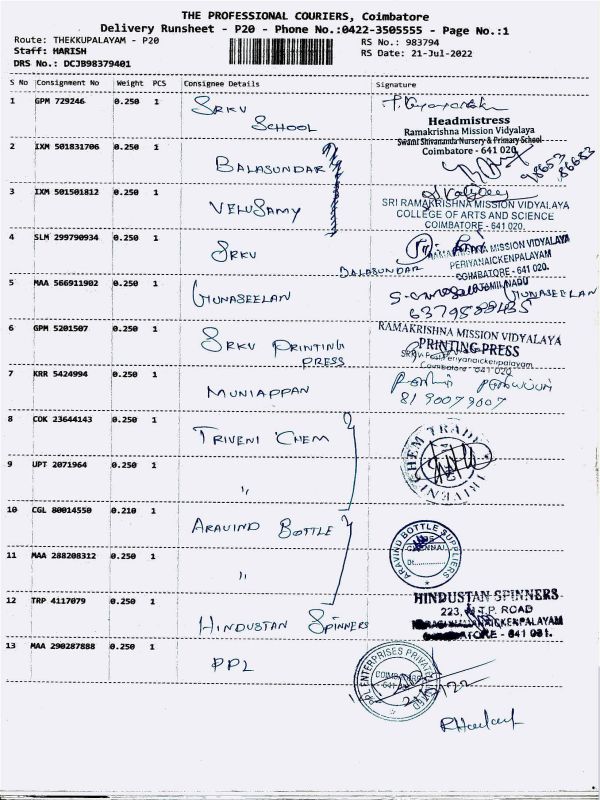 THE PROFESSIONAL COURIERS, Coimbatore
Delivery Runsheet - P20 - Phone No.:0422-3505555 - Page No.:1
Route: THEKKUPALAYAM - P20
RS No.: 983794
Staff: HARISH
RS Date: 21-Jul-2022
DRS No.: DCJB98379401
S No Consignment No Weight PCS Consignee Details Signature
1 GPM 729246 0.250 1 SRKV SCHOOL
Headmistress
Ramakrishna Mission Vidyalaya
Swami Shivananda Nursery & Primary School
Coimbatore - 641 020
2 IXM 501831706 0.250 1 BALASUNDAR
98653 86683
3 IXM 501501812 0.250 1 VELUSAMY
SRI RAMAKRISHNA MISSION VIDYALAYA
COLLEGE OF ARTS AND SCIENCE
COIMBATORE - 641 020.
4 SLM 299790934 0.250 1 SRKV
RAMAKRISHNA MISSION VIDYALAYA
PERIYANAICKENPALAYAM
COIMBATORE - 641 020.
TAMILNADU
BALASUNDAR
5 MAA 566911902 0.250 1 GUNASEELAN
GUNASEELAN
6 GPM 5201507 0.250 1 SRKV PRINTING PRESS
RAMAKRISHNA MISSION VIDYALAYA
PRINTING PRESS
SRKV Post Periyanaickenpalayam
Coimbatore - 641 020
7 KRR 5424994 0.250 1 MUNIAPPAN
81 90079007
8 COK 23644143 0.250 1 TRIVENI CHEM
TRIVENI CHEM TRADE
9 UPT 2071964 0.250 1 "
10 CGL 80014550 0.210 1 ARAVIND BOTTLE
ARAVIND BOTTLE SUPPLIERS
CHENNAI
Dt
11 MAA 288208312 0.250 1 "
12 TRP 4117079 0.250 1 HINDUSTAN SPINNERS
HINDUSTAN SPINNERS
223, N.T.P. ROAD
COIMBATORE - 641 031.
13 MAA 290287888 0.250 1 PPL
PPL ENTERPRISES PRIVATE LIMITED
COIMBATORE
21/7/22